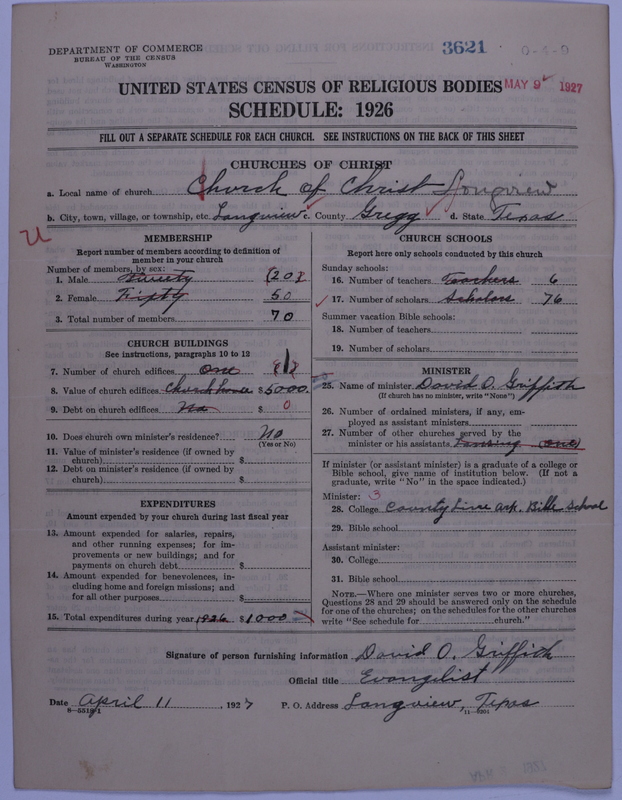 DEPARTMENT OF COMMERCE
BUREAU OF THE CENSUS
WASHINGTON
3621
0-4-9
UNITED STATES CENSUS OF RELIGIOUS BODIES
MAY 9 1927
SCHEDULE: 1926
FILL OUT A SEPARATE SCHEDULE FOR EACH CHURCH. SEE INSTRUCTIONS ON THE BACK OF THIS SHEET
CHURCHES OF CHRIST
a. Local name of church Church of Christ Longview
b. City, town, village, or township, etc. Longview c. County Gregg d. State Texas
U
MEMBERSHIP
Report number of members according to definition of
member in your church
Number of members, by sex:
1. Male Twenty (20)
2. Female Fifty 50
3. Total number of members 70
CHURCH BUILDINGS
See instructions, paragraphs 10 to 12
7. Number of church edifices one (1)
8. Value of church edifices Church house $5000.
9. Debt on church edifices No $ 0
10. Does church own minister's residence? No
(Yes or No)
11. Value of minister's residence (if owned by
church) $
12. Debt on minister's residence (if owned by
church) $
EXPENDITURES
Amount expended by your church during last fiscal year
13. Amount expended for salaries, repairs,
and other running expenses; for im-
provements or new buildings; and for
payments on church debt $
14. Amount expended for benevolences, in-
cluding home and foreign missions; and
for all other purposes $
15. Total expenditures during year 1926 $1000
CHURCH SCHOOLS
Report here only schools conducted by this church
Sunday schools:
16. Number of teachers Teachers 6
17. Number of scholars Scholars 76
Summer vacation Bible schools:
18. Number of teachers
19. Number of scholars
MINISTER
25. Name of minister David O. Griffith
(If church has no minister, write "None")
26. Number of ordained ministers, if any, em-
ployed as assistant ministers
27. Number of other churches served by the
minister or his assistants (one)
If minister (or assistant minister) is a graduate of a college or
Bible school, give name of institution below. (If not a
graduate, write "No" in the space indicated.)
Minister: 3
28. College County Line Ark. Bible School
29. Bible school
Assistant minister:
30. College
31. Bible school
NOTE.—Where one minister serves two or more churches,
Questions 28 and 29 should be answered only on the schedule
for one of the churches; on the schedules for the other churches
write "See schedule for church."
Signature of person furnishing information David O. Griffith
Official title Evangelist
Date April 11, 1927 P. O. Address Longview, Texas